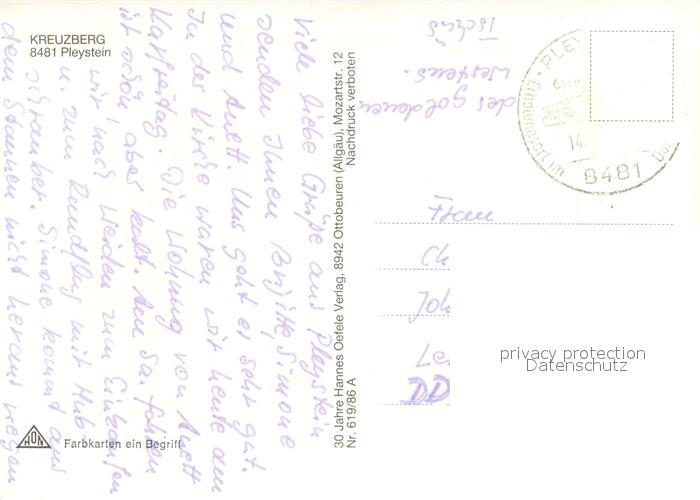 KREUZBERG
8481 Pleystein
Viele liebe Grüße aus Pleystein
senden Ihnen Brigitte, Simone
und Anett. Uns geht es sehr gut.
In der Kirche waren wir heute am
Karfreitag. Die Wohnung von Anett
ist schön, aber kalt. Am Sa. fahren
wir nach Weiden zum Einkaufen
u. zum Rundflug mit Hub
schrauber. Simone kommt aus
dem Staunen nicht heraus wegen
des goldenen
Westens.
Tschüs
30 Jahre Hannes Oefele Verlag, 8942 Ottobeuren (Allgäu), Mozartstr. 12
Nr. 619/86 A
Nachdruck verboten
HON
Farbkarten ein Begriff
PLEY
Erholungsort im
14.
8481
Frau
privacy protection
Datenschutz